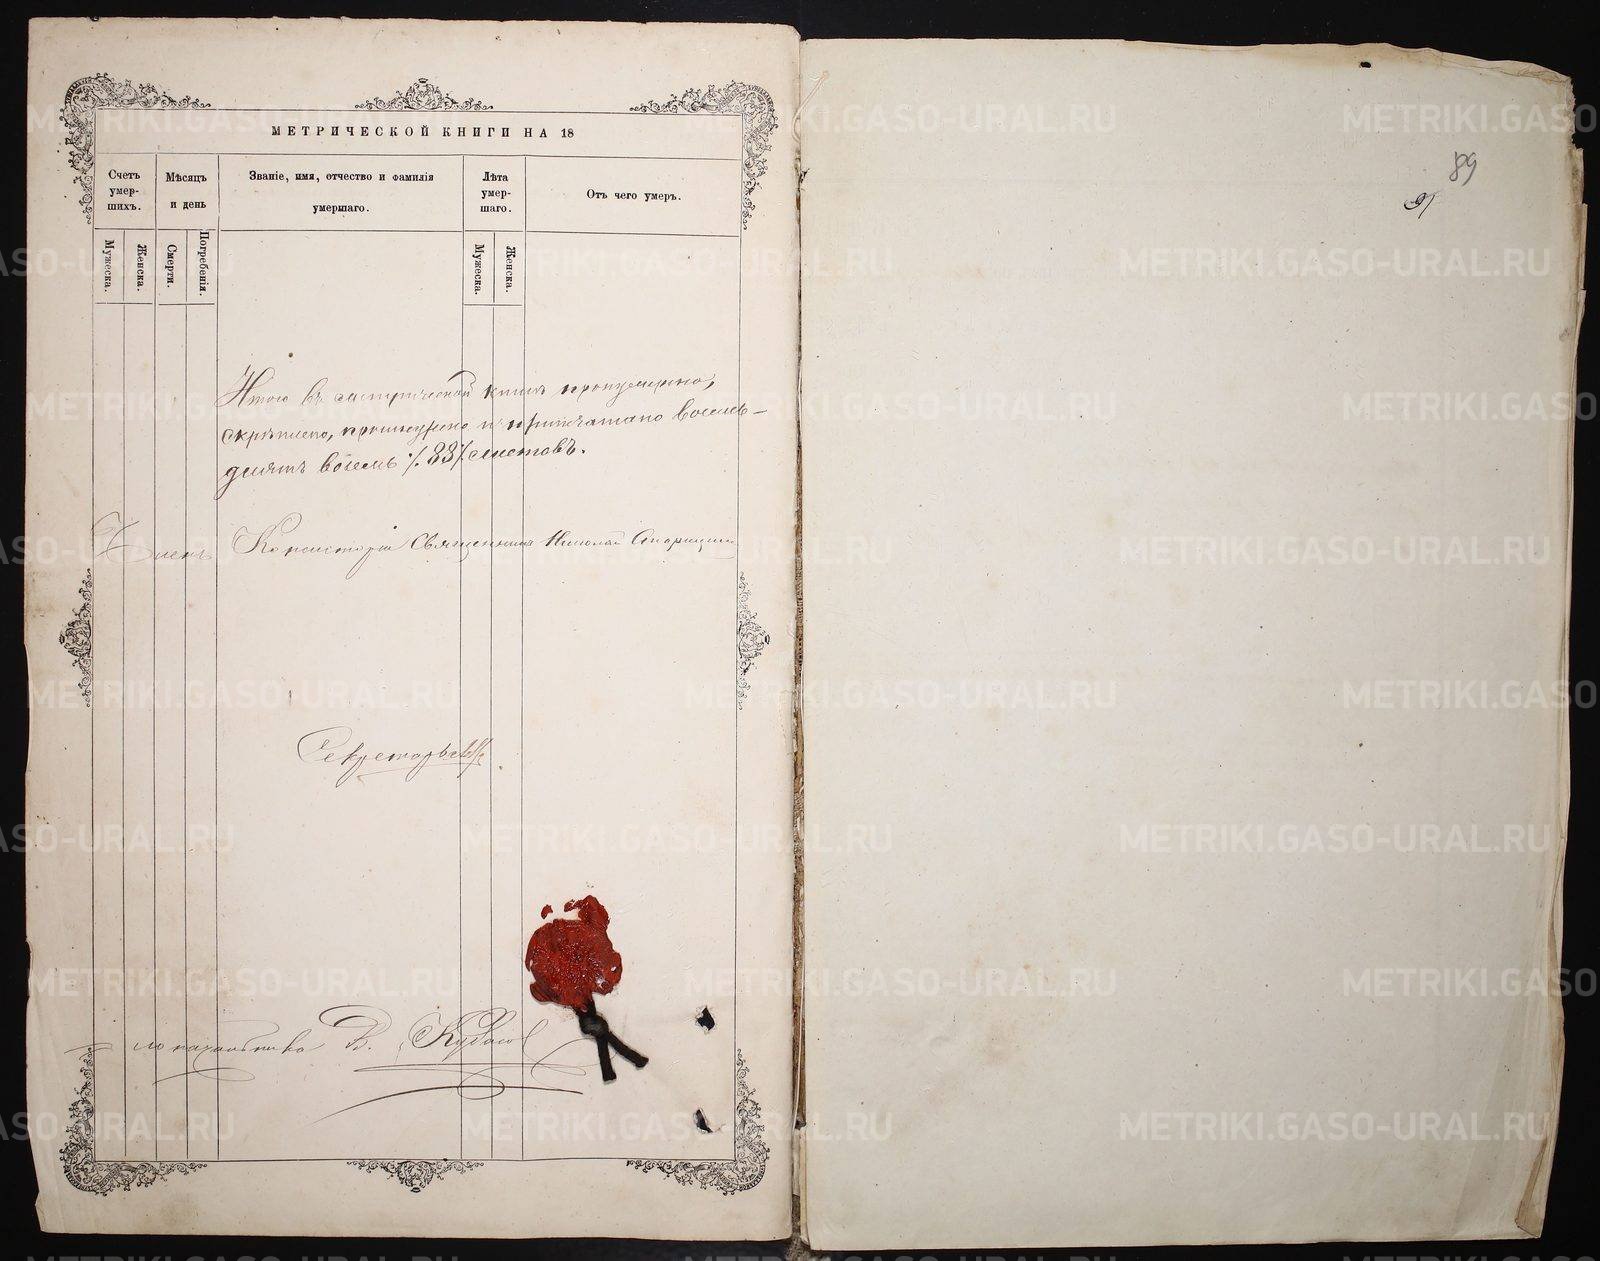 МЕТРИЧЕСКОЙ КНИГИ НА 18
Счетъ умер-шихъ.
Мѣсяцъ и день
Званіе, имя, отчество и фамилія умершаго.
Лѣта умер-шаго.
Отъ чего умеръ.
Мужеска.
Женска.
Смерти.
Погребенія.
Мужеска.
Женска.
Итого въ метрической книгѣ пронумерно,
скрѣплено, прошнурено и припечатано восемь-
десятъ восемь /.88/. листовъ.
Членъ Консисторіи Священникъ Николай
Секретарь
Столоначальника В.
89
METRIKI.GASO-URAL.RU